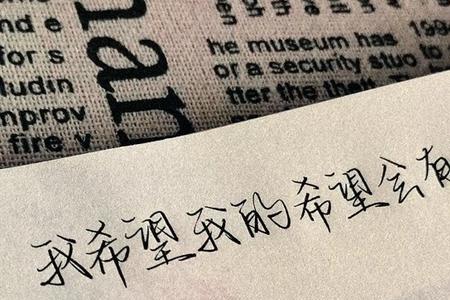 nd e
for s
ludin
mprov
fire v
an
he museum has
or a security stuo
tter the
1994
to
我希望我的希望会有